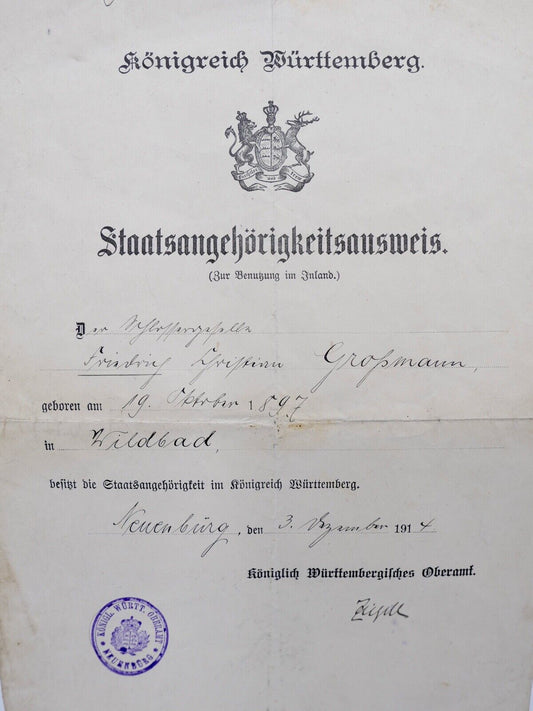 Königreich Württemberg.
Staatsangehörigkeitsausweis.
(Zur Benutzung im Inland.)
Der Schlossergeselle
Friedrich Christian Großmann,
geboren am 19. Oktober 1897
in Wildbad,
besitzt die Staatsangehörigkeit im Königreich Württemberg.
Neuenbürg, den 3. Dezember 1914
Königlich Württembergisches Oberamt.
KÖNIGL. WÜRTT. OBERAMT
NEUENBÜRG